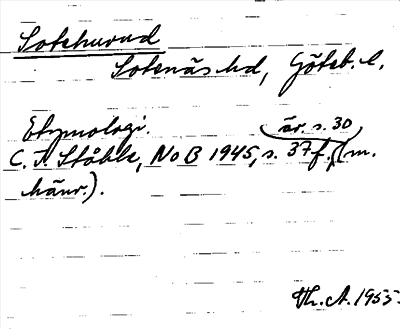 Sotehuvud
Sotenäs hd, Göteb. l.
Etymologi.
äv. s. 30
C. I. Ståhle, NoB 1945, s. 37 f. (m.
hänv.).
Th. A. 1955.